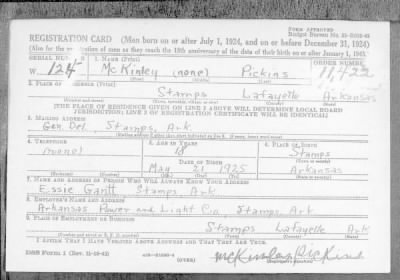 FORM APPROVED
REGISTRATION CARD (Men born on or after July 1, 1924, and on or before December 31, 1924)
(Also for the registration of men as they reach the 18th anniversary of the date of their birth on or after January 1, 1925.)
SERIAL NUMBER 1. NAME (Print) ORDER NUMBER
W 124 McKinley (none) Pickins 11,422
(First) (Middle) (Last)
2. PLACE OF RESIDENCE (Print)
Stamps Lafayette Arkansas
(Number and street) (Town, township, village, or city) (County) (State)
[THE PLACE OF RESIDENCE GIVEN ON LINE 2 ABOVE WILL DETERMINE LOCAL BOARD
JURISDICTION; LINE 2 OF REGISTRATION CERTIFICATE WILL BE IDENTICAL]
3. MAILING ADDRESS
Gen. Del. Stamps, Ark
4. TELEPHONE 5. AGE IN YEARS 6. PLACE OF BIRTH
(none) 18 Stamps
DATE OF BIRTH
May 21 1925 Arkansas
(Mo.) (Day) (Yr.) (State or country)
7. NAME AND ADDRESS OF PERSON WHO WILL ALWAYS KNOW YOUR ADDRESS
Essie Gantt Stamps, Ark
8. EMPLOYER'S NAME AND ADDRESS
Arkansas Power and Light Co, Stamps, Ark
9. PLACE OF EMPLOYMENT OR BUSINESS
Stamps Lafayette Ark
(Number and street or R. F. D. number) (Town) (County) (State)
I AFFIRM THAT I HAVE VERIFIED ABOVE ANSWERS AND THAT THEY ARE TRUE.
DSS Form 1 (OVER) McKinley Pickins
(Registrant's signature)